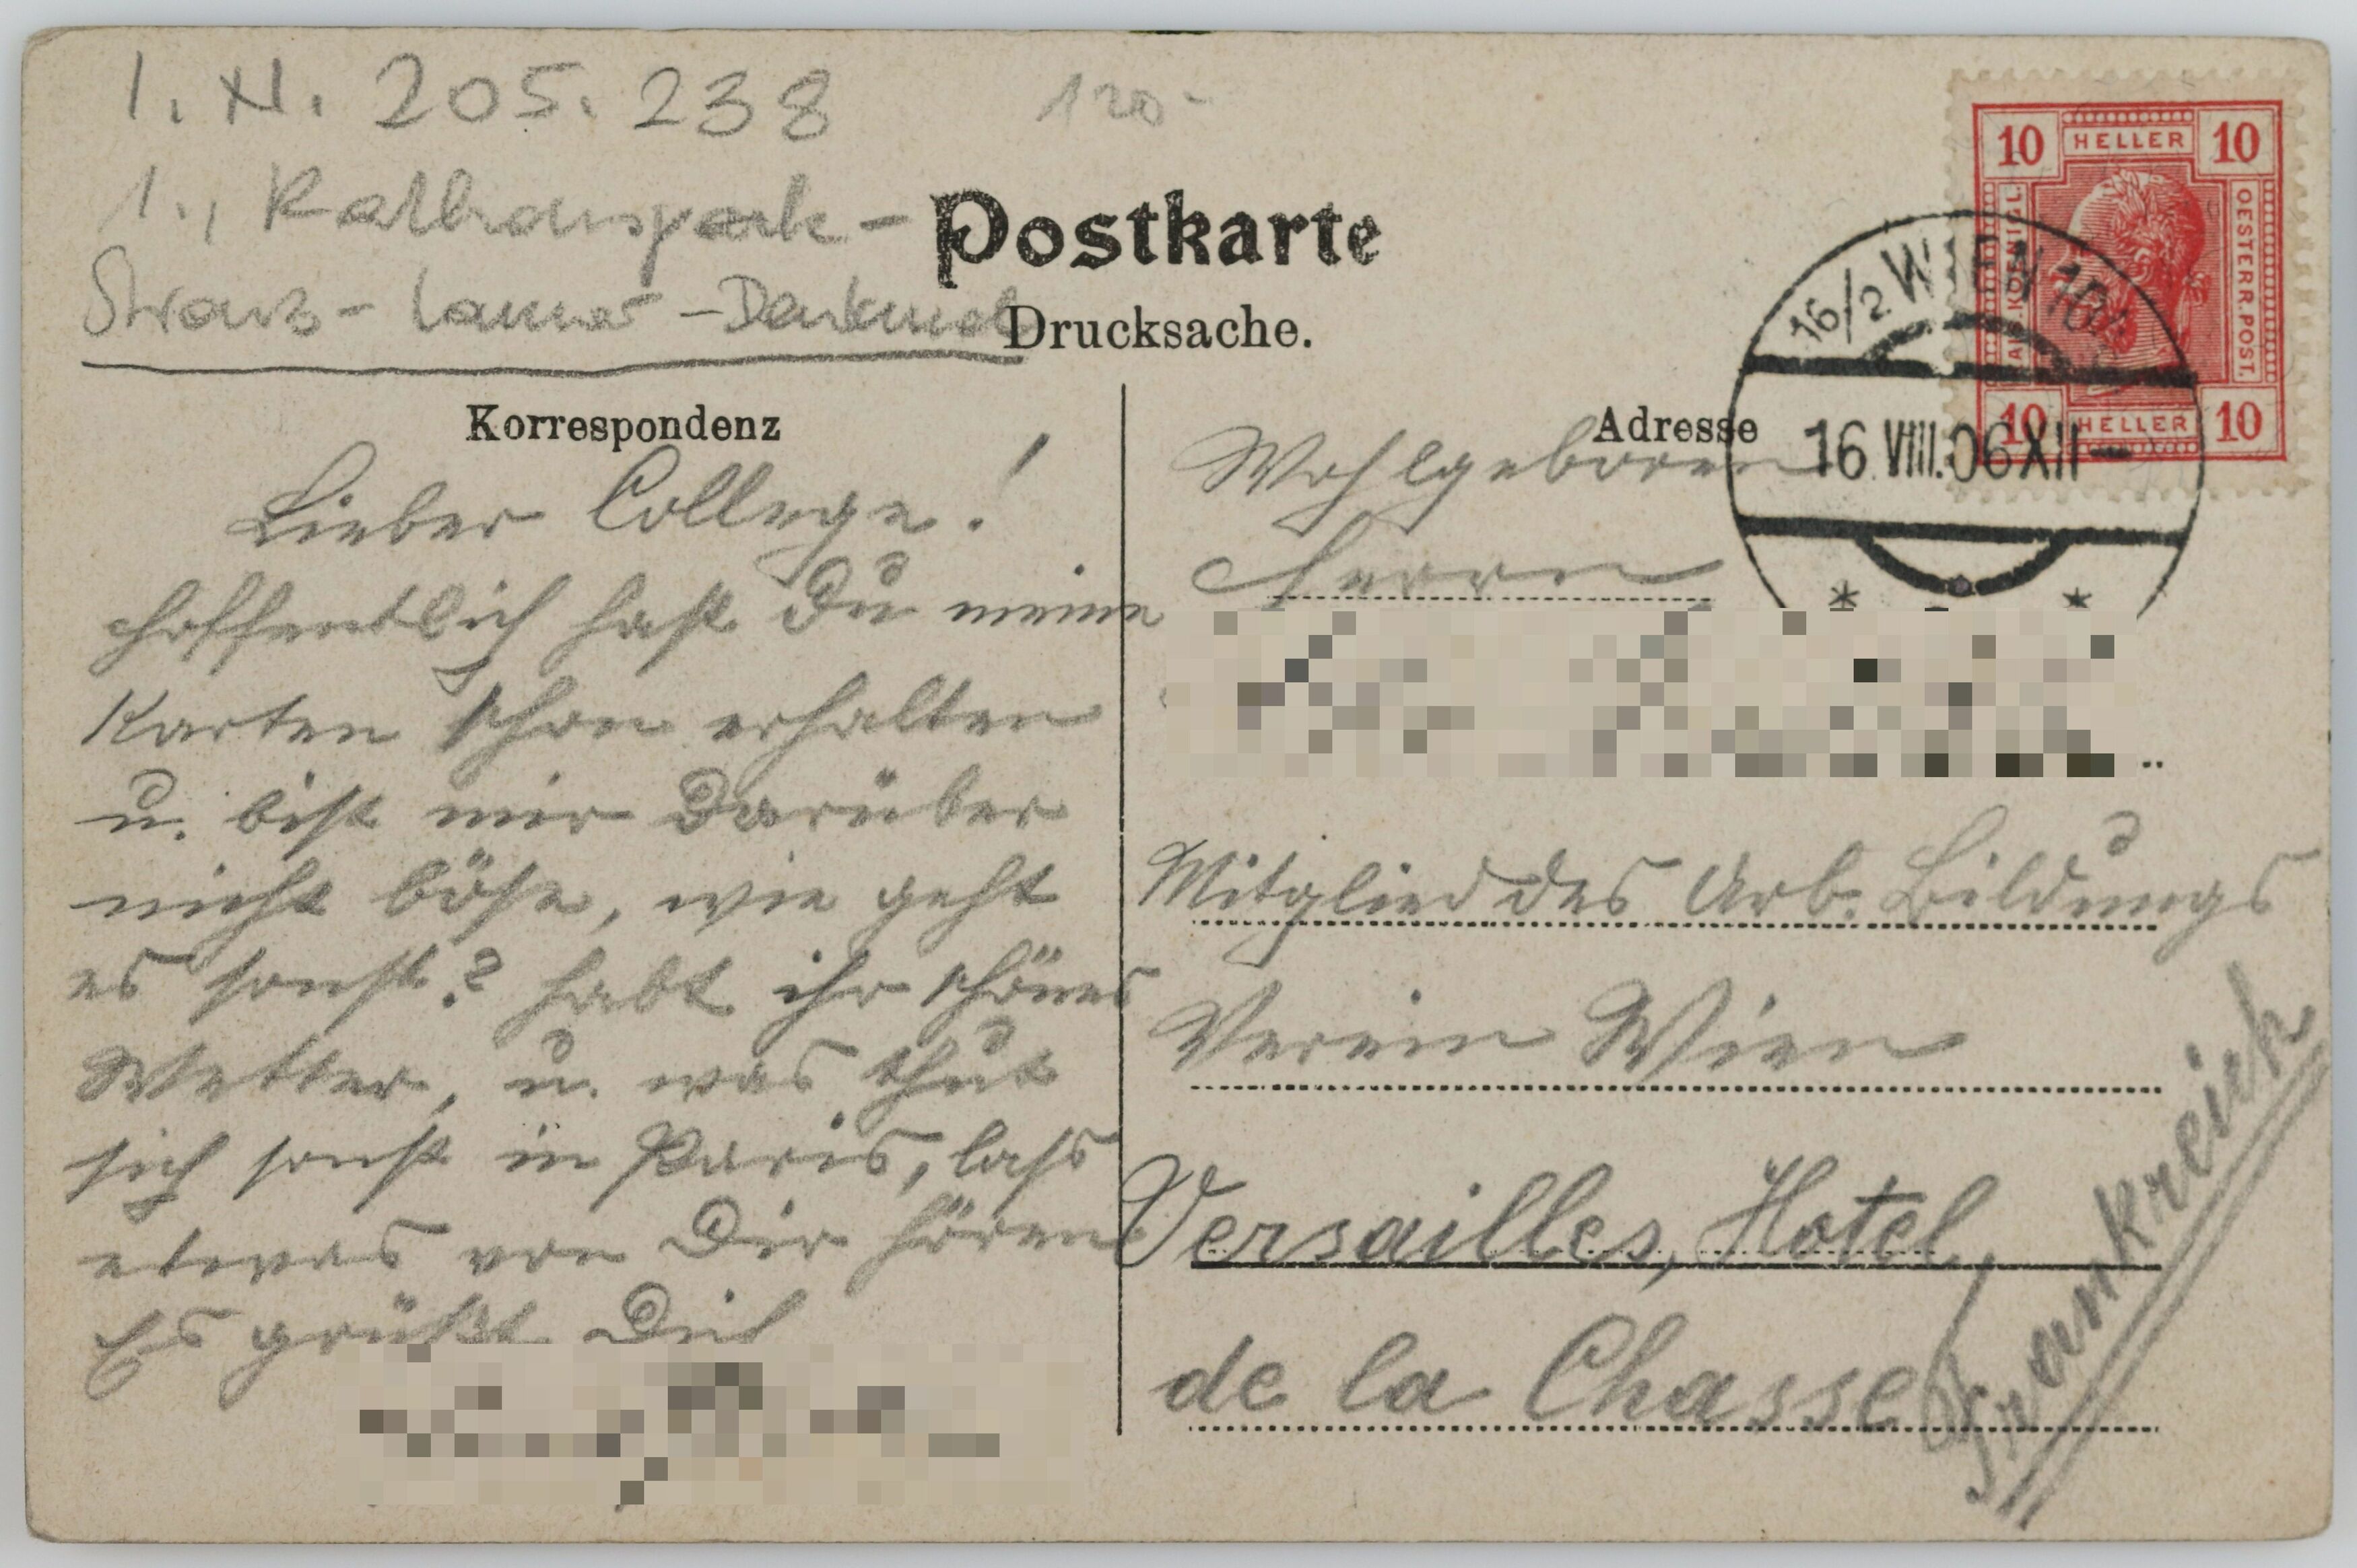 I. N. 205.238
120-
1., Rathauspark-
Strauß-Lanner-Denkmal
Postkarte
Drucksache.
10 HELLER 10
OESTERR. POST.
10 HELLER 10
16/2 WIEN
16.VIII.06 XII-
* *
Korrespondenz
Lieber College!
hoffentlich hast Du meine
Karten schon erhalten
u. bist mir darüber
nicht böse, wie geht
es sonst? habt ihr schönes
Wetter, u. was thut
sich sonst in Paris, lass
etwas von Dir hören
Es grüßt Dich
Adresse
Wohlgeboren
Herrn
Mitglied des Arb. Bildungs
Verein Wien
Versailles, Hotel
de la Chasse
Frankreich